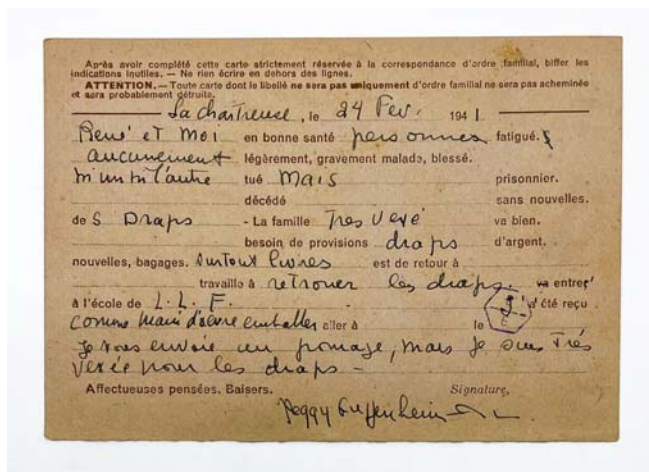 Après avoir complété cette carte strictement réservée à la correspondance d'ordre familial, biffer les
indications inutiles. — Ne rien écrire en dehors des lignes.
ATTENTION. — Toute carte dont le libellé ne sera pas uniquement d'ordre familial ne sera pas acheminée
et sera probablement détruite.
La chartreuse, le 24 Fev. 1941
René et Moi en bonne santé personnes fatigué.
aucunement légèrement, gravement malade, blessé.
ni un ni l'autre tué Mais prisonnier.
décédé sans nouvelles.
de S Draps - La famille Tres Vexé va bien.
besoin de provisions draps d'argent.
nouvelles, bagages. surtout livres est de retour à
travaille à retrouver les draps. va entrer
à l'école de L. L. F. a été reçu
comme main d'œuvre emballer aller à le
Je vous envoie un fromage, mais je suis Très
Vexée pour les draps -
Affectueuses pensées. Baisers. Signature,
Peggy Guggenheim